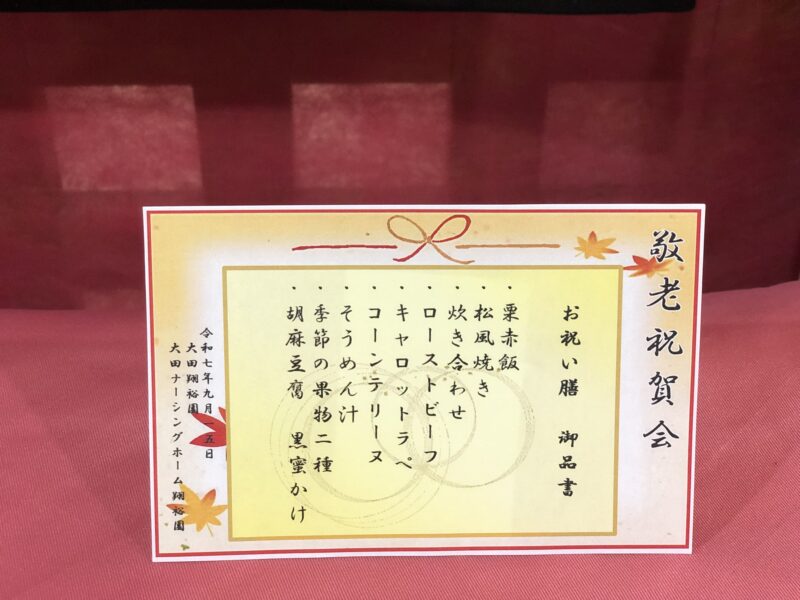 敬老祝賀会
お祝い膳 御品書
・栗赤飯
・松風焼き
・炊き合わせ
・ローストビーフ
・キャロットラペ
・コーンテリーヌ
・そうめん汁
・季節の果物二種
・胡麻豆腐 黒蜜かけ
令和七年九月一五日
大田翔裕園
大田ナーシングホーム翔裕園